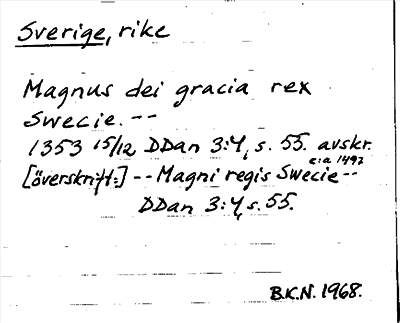 Sverige, rike
Magnus dei gracia rex
Swecie. --
1353 15/12 DDan 3:4, s. 55. avskr.
c:a 1492
[överskrift:] -- Magni regis Swecie --
DDan 3:4, s. 55.
B.K.N. 1968.